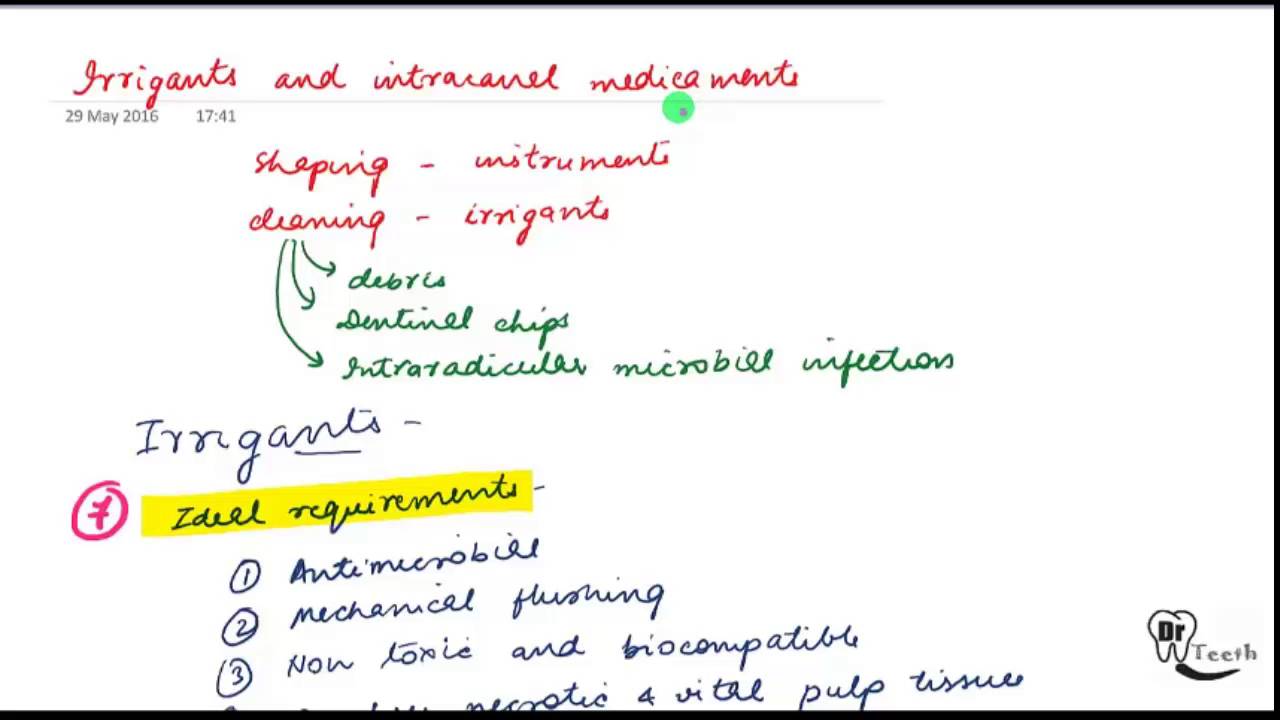 Irrigants and intracanal medicaments
29 May 2016 17:41
shaping - instruments
cleaning - irrigants
debris
Dentinal chips
Intraradicular microbial infections
Irrigants -
7 Ideal requirements -
1 Antimicrobial
2 Mechanical flushing
3 Non toxic and biocompatible
necrotic & vital pulp tissue
Dr Teeth